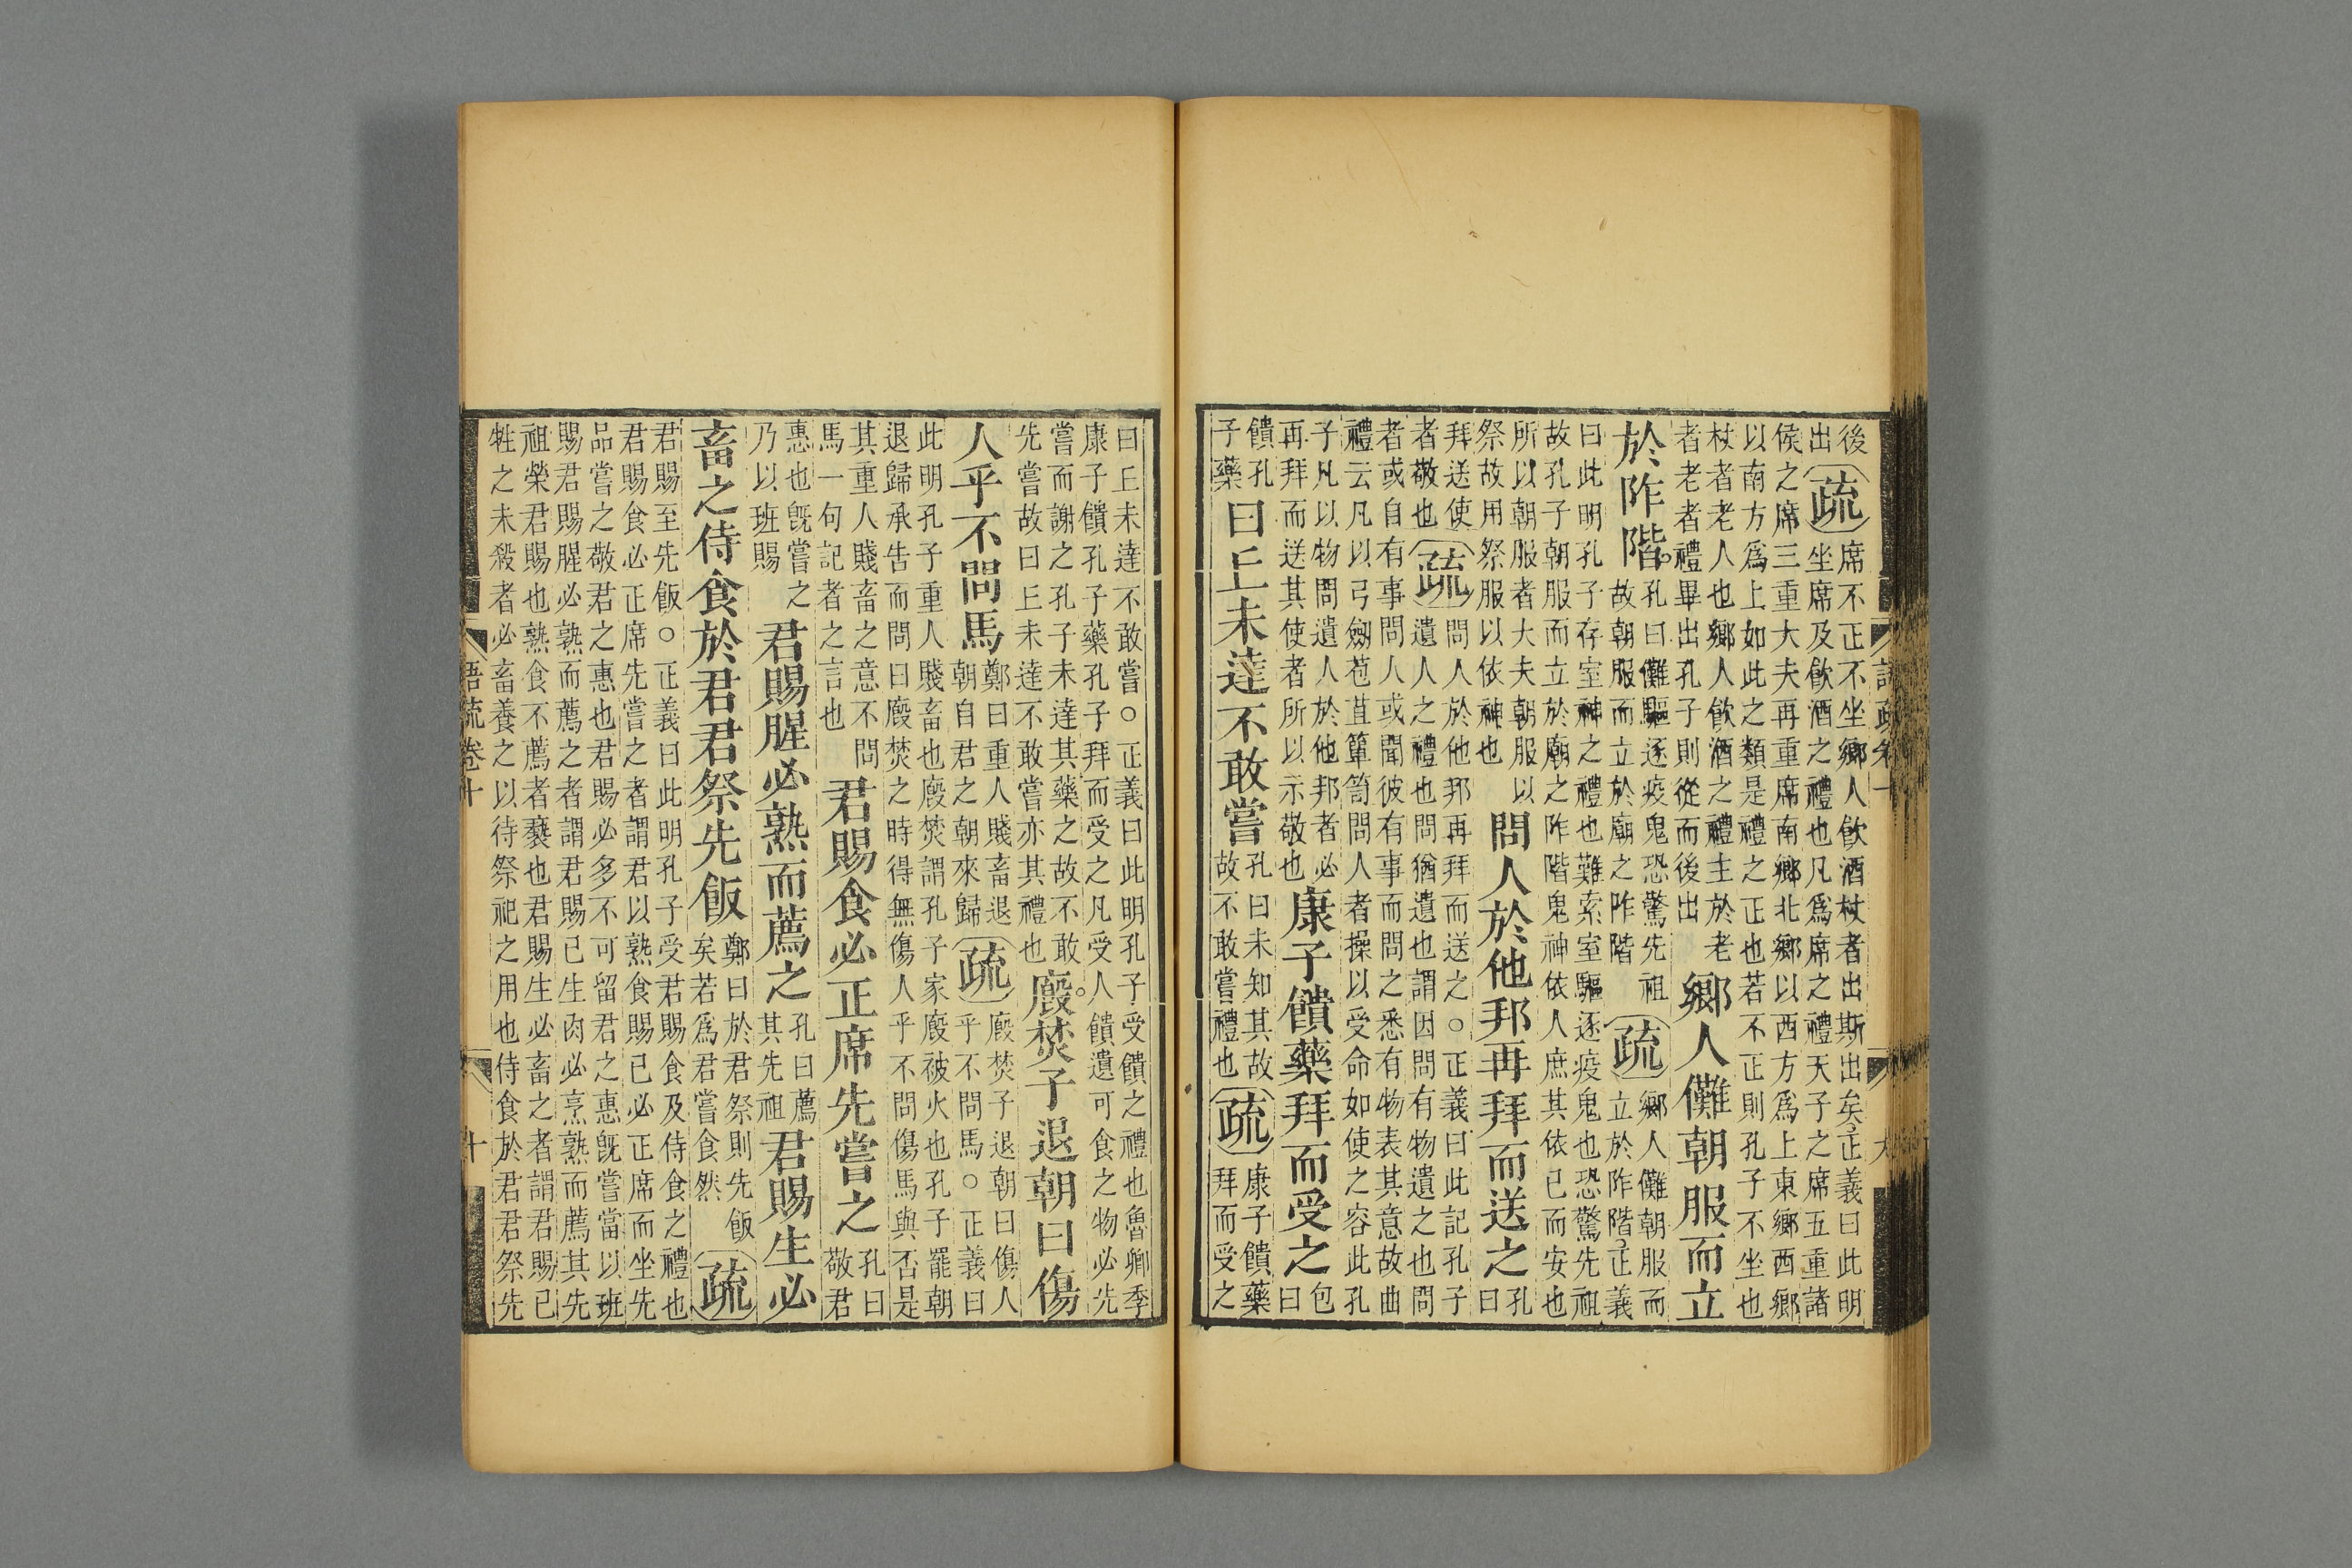 後出疏席不正不坐鄉人飲酒杖者出斯出矣。正義曰此明
坐席及飲酒之禮也凡爲席之禮天子之席五重諸
侯之席三重大夫再重席南鄉北鄉以西方爲上東鄉西鄉
以南方爲上如此之類是禮之正也若不正則孔子不坐也
杖者老人也鄉人飲酒之禮主於老
者老者禮畢出孔子則從而後出
鄉人儺朝服而立
於阼階。
孔曰儺驅逐疫鬼恐驚先祖
故朝服而立於廟之阼階
疏鄉人儺朝服而
立於阼階。正義
曰此明孔子存室神之禮也難索室驅逐疫鬼也恐驚先祖
故孔子朝服而立於廟之阼階鬼神依人庶其依已而安也
所以朝服者大夫朝服以
祭故用祭服以依神也
問人於他邦再拜而送之
孔曰
拜送使
者敬也
疏問人於他邦再拜而送之。正義曰此記孔子
遺人之禮也問猶遺也謂因問有物遺之也問
者或自有事問人或聞彼有事而問之悉有物表其意故曲
禮云凡以弓劒苞苴簞笥問人者操以受命如使之容此孔
子凡以物問遺人於他邦者必
再拜而送其使者所以示敬也
康子饋藥拜而受之
包曰
饋孔
子藥
曰丘未達不敢嘗
孔曰未知其故
故不敢嘗禮也
疏康子饋藥
拜而受之
語疏卷十
九
曰丘未達不敢嘗。正義曰此明孔子受饋之禮也魯卿季
康子饋孔子藥孔子拜而受之凡受人饋遺可食之物必先
嘗而謝之孔子未達其藥之故不敢
先嘗故曰丘未達不敢嘗亦其禮也
。廏焚子退朝曰傷
人乎不問馬
鄭曰重人賤畜退
朝自君之朝來歸
疏廏焚子退朝曰傷人
乎不問馬。正義曰
此明孔子重人賤畜也廏焚謂孔子家廏被火也孔子罷朝
退歸承告而問曰廏焚之時得無傷人乎不問傷馬與否是
其重人賤畜之意不問
馬一句記者之言也
君賜食必正席先嘗之
孔曰
敬君
惠也旣嘗之
乃以班賜
君賜腥必熟而薦之
孔曰薦
其先祖
君賜生必
畜之侍食於君君祭先飯
鄭曰於君祭則先飯
矣若爲君嘗食然
疏
君賜至先飯。正義曰此明孔子受君賜食及侍食之禮也
君賜食必正席先嘗之者謂君以熟食賜已必正席而坐先
品嘗之敬君之惠也君賜必多不可留君之惠旣嘗當以班
賜君賜腥必熟而薦之者謂君賜已生肉必烹熟而薦其先
祖榮君賜也熟食不薦者褻也君賜生必畜之者謂君賜已
牲之未殺者必畜養之以待祭祀之用也侍食於君君祭先
語疏卷十
十